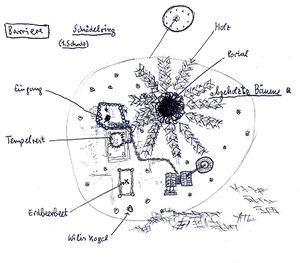 Barriere
Schädelring
(1. Schutz)
Holz
Portal
Abgeholzte Bäume
Eingang
Tempelrest
Erdbeerbeet